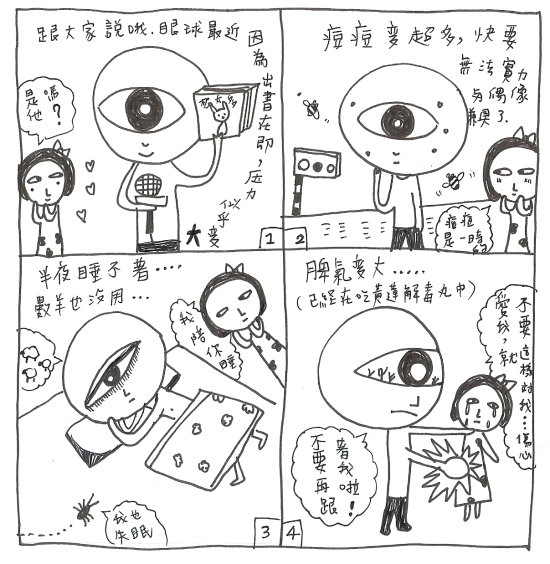 跟大家說哦,眼球最近
因為出書在即,压力
似乎
大变
是他
嗎?
1
痘痘变超多,快要
無法實力
与偶像
兼具了.
痘痘
是一時的
2
半夜睡不著.....
數羊也沒用...
我陪
你睡
我也
失眠
3
脾氣变大.....
(已經在吃黃連解毒丸中)
愛我,就
不要這樣對我...傷心
不要再跟
著我啦!
4